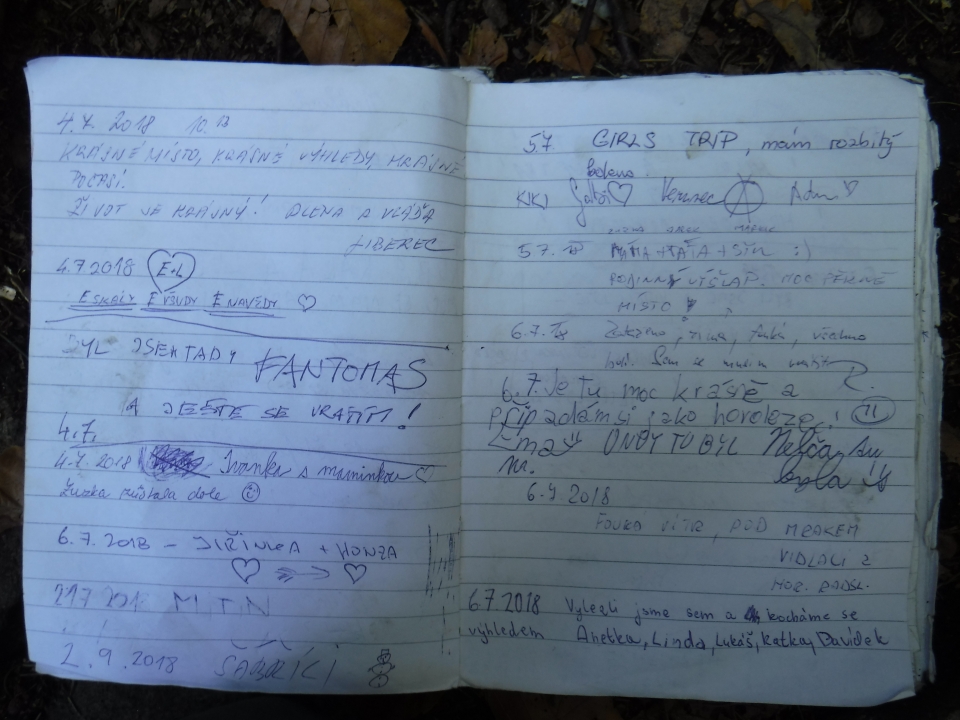 4.7. 2018 10.13
KRÁSNÉ MÍSTO, KRÁSNÉ VÝHLEDY, KRÁSNÉ
POČASÍ.
ŽIVOT JE KRÁSNÝ! ALENA A VLÁĎA
LIBEREC
4.7.2018 E+L
E SKÁLY E VŠUDY E NAVŽDY
BYL JSEM TADY
FANTOMAS
A JEŠTĚ SE VRÁTÍM!
4.7.
4.7. 2018 Ivanka s maminkou
Zuzka zůstala dole
6.7.2018 - JIŘINKA + HONZA
MTN
2.9.2018
57 GIRLS TRIP, mám rozbitý
koleno
KIKI Gabi
5.7. MÁMA + TÁTA + SYN :)
RODINNÝ VÝŠLAP. MOC PĚKNÉ
MÍSTO
6.7. zima, všechno
bolí. Sem se musím vrátit
R.
6.7. Je tu moc krásně a
připadám si jako horolezec! 11
Ema ONDY TU BYL
byla
6.7.2018
FOUKÁ VÍTR, POD MRAKEM
VIDLÁCI Z
HOR.
6.7.2018 Vylezli jsme sem a kocháme se
výhledem Anetka, Linda, Lukáš, Katka, Davídek